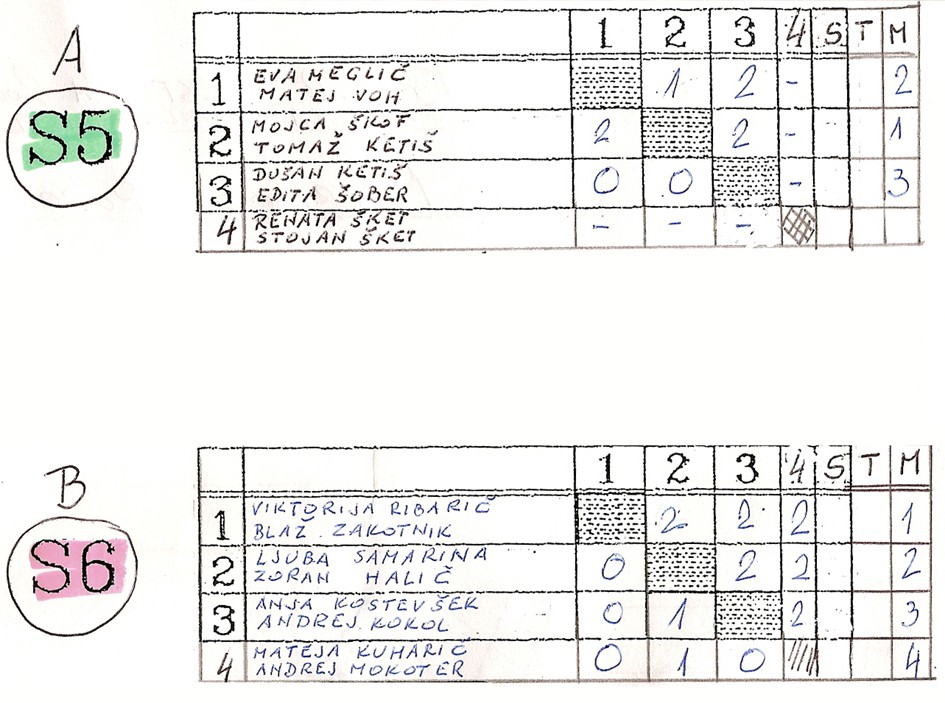 A
S5
1 2 3 4 S T M
1 EVA MEGLIČ 1 2 - 2
MATEJ VOH
2 MOJCA ŠKOF 2 2 - 1
TOMAŽ KETIŠ
3 DUŠAN KETIŠ 0 0 - 3
EDITA ŠOBER
4 RENATA ŠKET - - -
STOJAN ŠKET
B
S6
1 2 3 4 S T M
1 VIKTORIJA RIBARIČ 2 2 2 1
BLAŽ ZAKOTNIK
2 LJUBA SAMARINA 0 2 2 2
ZORAN HALIČ
3 ANJA KOSTEVŠEK 0 1 2 3
ANDREJ KOKOL
4 MATEJA KUHARIČ 0 1 0 4
ANDREJ MOKOTER